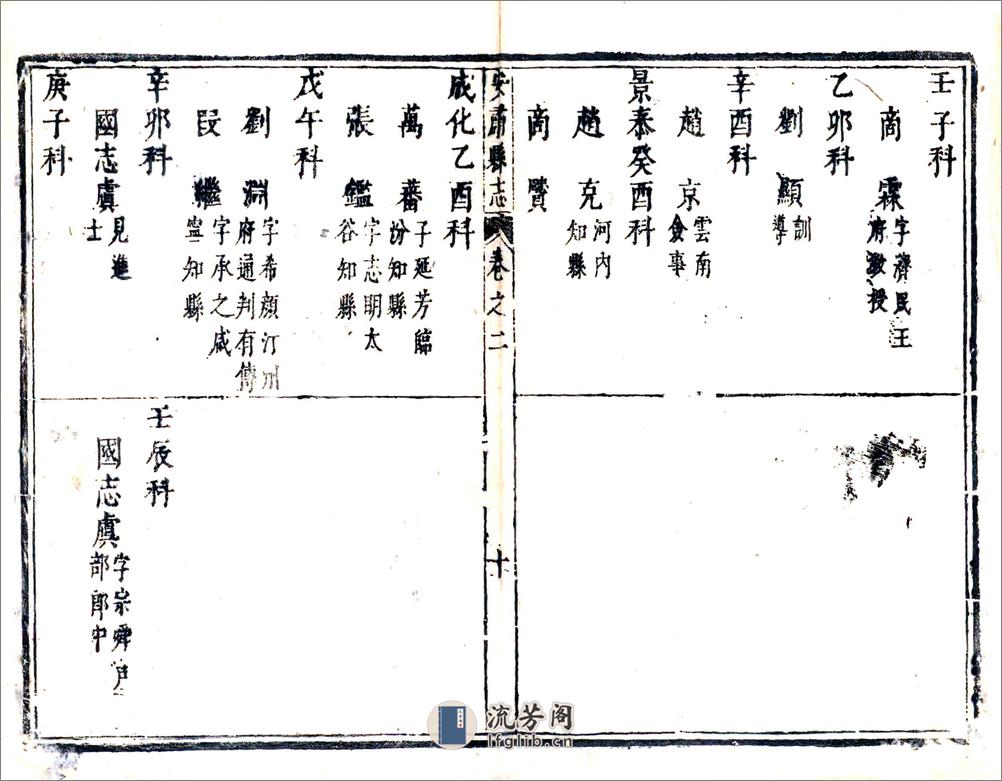 壬子科
商霖 字濟民王府教授
乙卯科
劉顯 訓導
辛酉科
趙京 雲南僉事
景泰癸酉科
趙克 河內知縣
商贒
安肅縣志 卷之二 十
成化乙酉科
萬蕃 子延芳臨汾知縣
張鑑 字志明太谷知縣
戊午科
劉淵 字希顏汀州府通判有傳
段繼 字承之咸寧知縣
辛卯科
國志虞 見進士
庚子科
壬辰科
國志虞 字宗舜戶部郎中
流芳阁
lfglib.cn